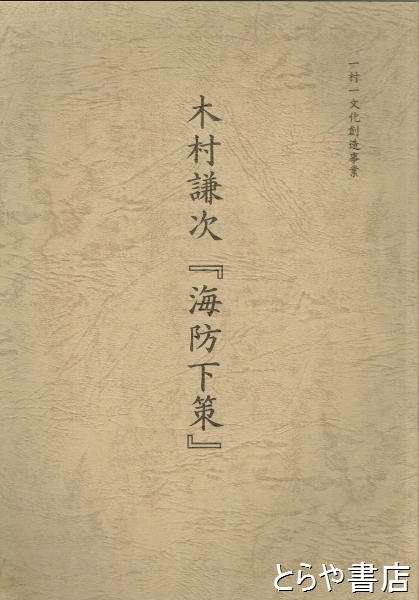 一村一文化創造事業
木村謙次『海防下策』
とらや書店